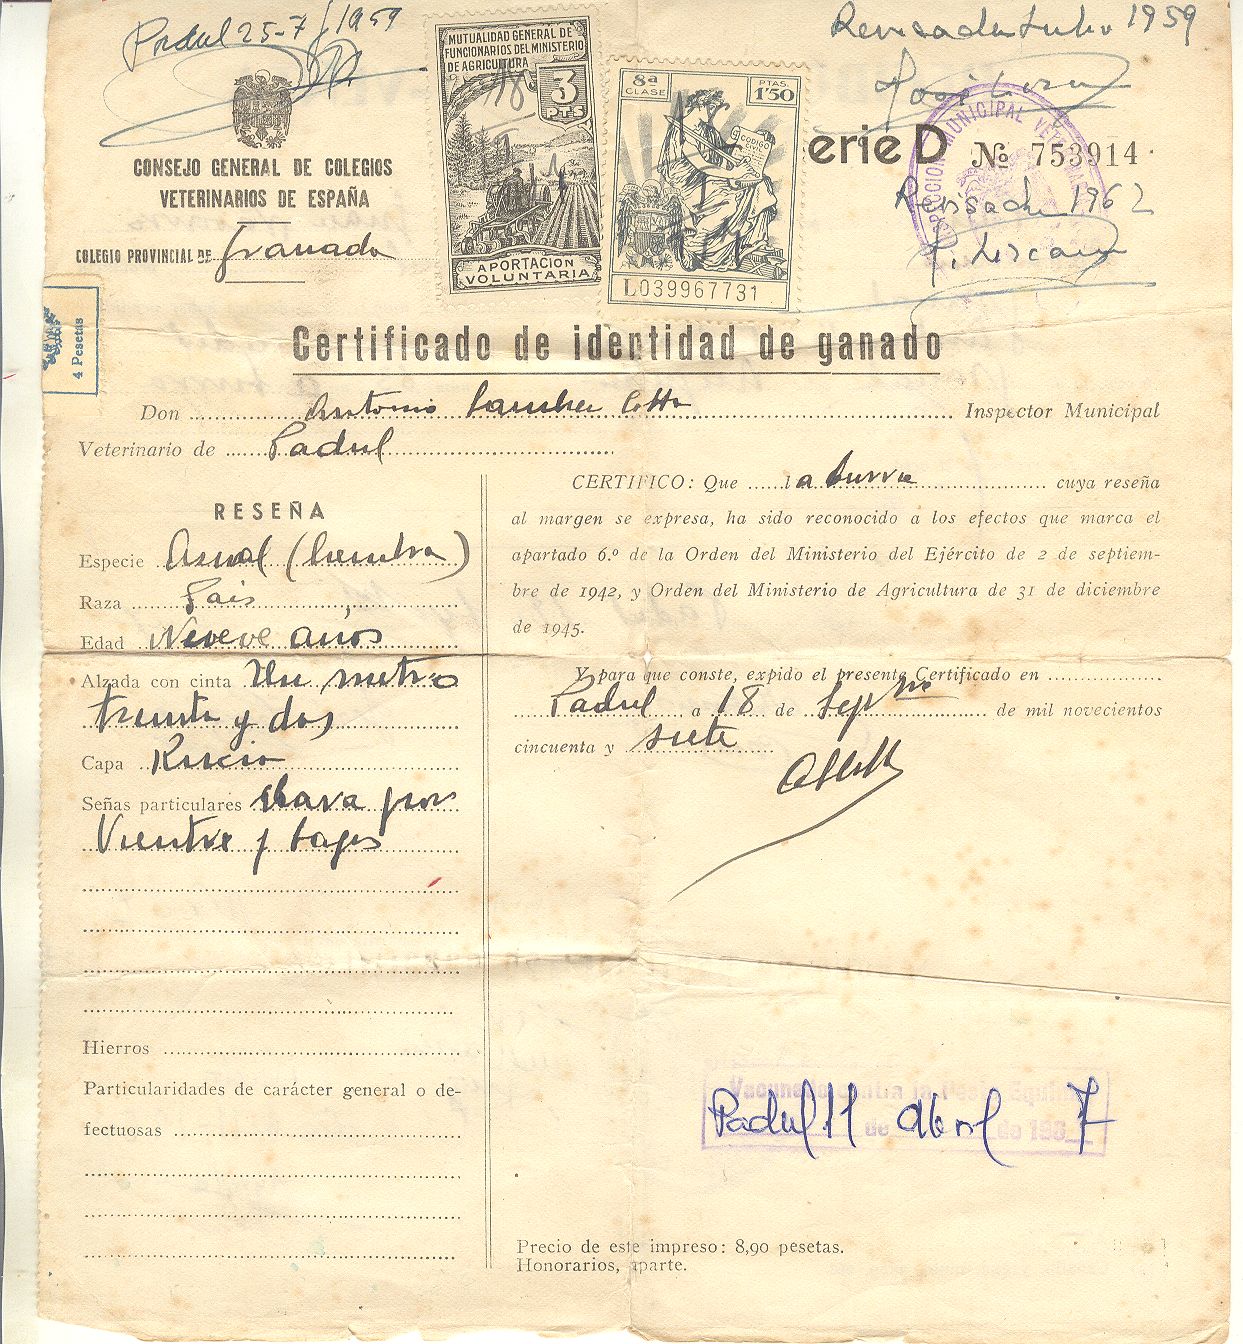 Padul 25-7-1959
Revisada Julio 1959
MUTUALIDAD GENERAL DE
FUNCIONARIOS DEL MINISTERIO
DE AGRICULTURA
18
3
PTS
APORTACION
VOLUNTARIA
8ª
CLASE
PTAS.
1'50
CODIGO
CIVIL
L039967731
erie D Nº 753914
INSPECCION MUNICIPAL VETERINARIA
Revisada 1962
CONSEJO GENERAL DE COLEGIOS
VETERINARIOS DE ESPAÑA
COLEGIO PROVINCIAL DE Granada
4 Pesetas
Certificado de identidad de ganado
Don Antonio Sanchez Cotta Inspector Municipal
Veterinario de Padul
RESEÑA
Especie Asnal (hembra)
Raza Pais
Edad Nueve años
Alzada con cinta Un metro
treinta y dos
Capa Rucia
Señas particulares Lava por
Vientre y bragas
Hierros
Particularidades de carácter general o de-
fectuosas
CERTIFICO: Que la burra cuya reseña
al margen se expresa, ha sido reconocido a los efectos que marca el
apartado 6.º de la Orden del Ministerio del Ejército de 2 de septiem-
bre de 1942, y Orden del Ministerio de Agricultura de 31 de diciembre
de 1945.
Y para que conste, expido el presente Certificado en
Padul a 18 de Sepbre de mil novecientos
cincuenta y siete
Vacunado contra la Peste Equina
Padul 11 de Abril de 196 7
Precio de este impreso: 8,90 pesetas.
Honorarios, aparte.